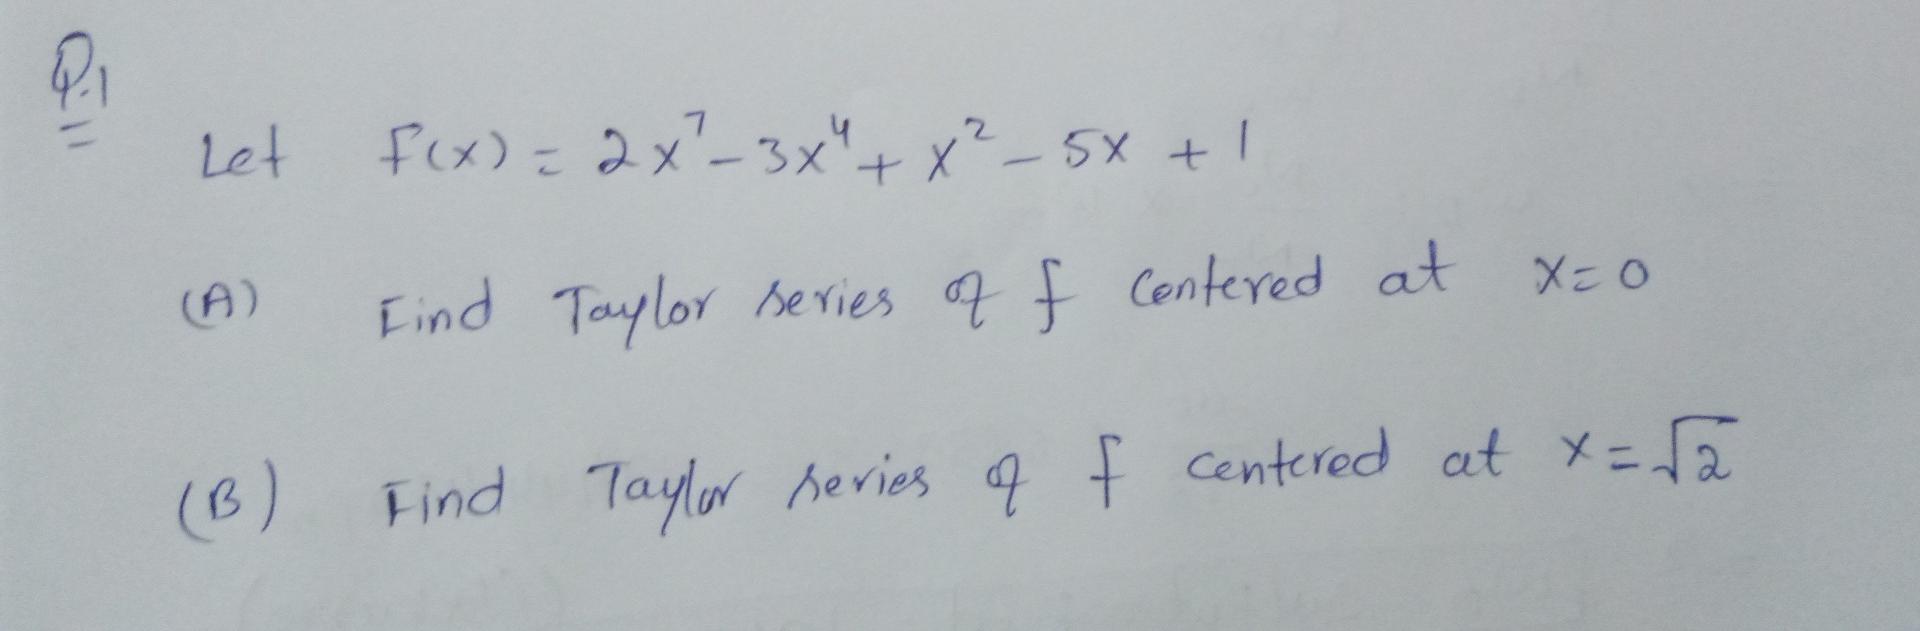 Q.1
Let f(x) = 2x⁷ - 3x⁴ + x² - 5x + 1
(A) Find Taylor series of f centered at x=0
(B) Find Taylor series of f centered at x=√2